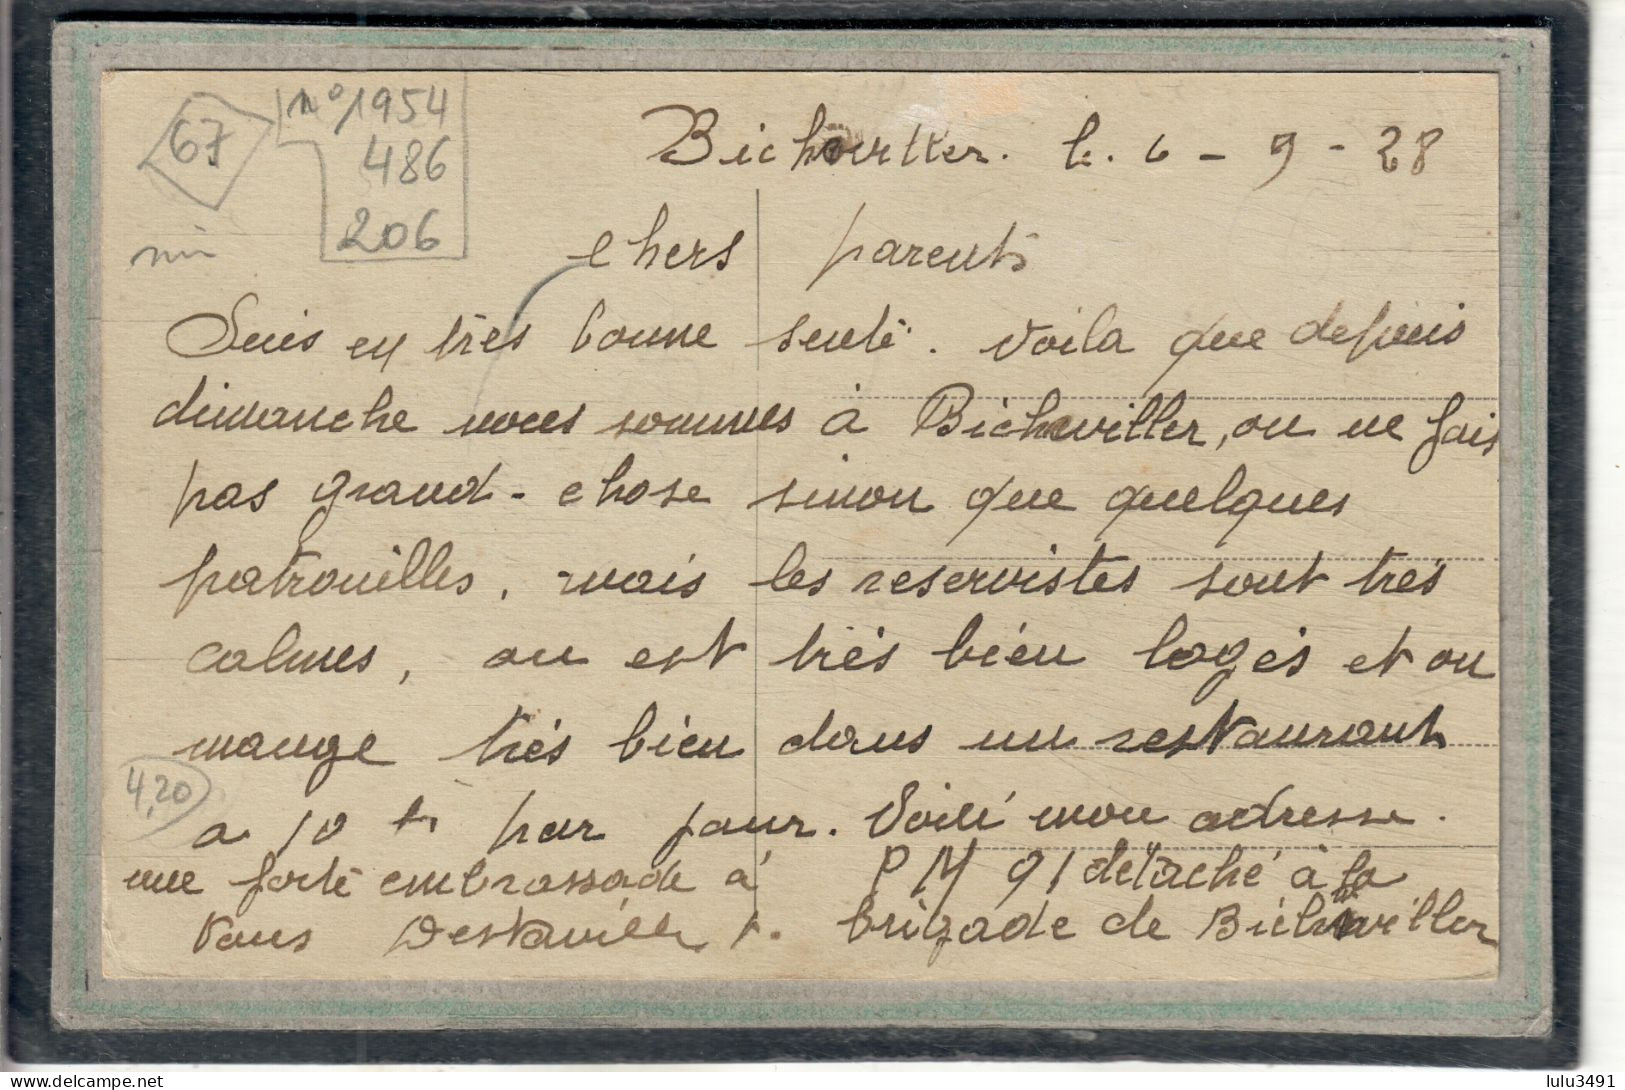 67
n° 1954
486
206
Bichwiller. le. 6 - 9 - 28
chers parents
Suis en très bonne senté. Voila que depuis
dimanche nous sommes à Bichwiller, on ne fais
pas grand-chose sinon que quelques
patrouilles. mais les reservistes sont très
calmes, on est très bien logés et on
mange très bien dans un restaurant
4,20
a 10 frs par jour. Voici mon adresse.
une forte embrassade à
vous
PM 91 détaché à la
brigade de Bichwiller
lulu3491
delcampe.net